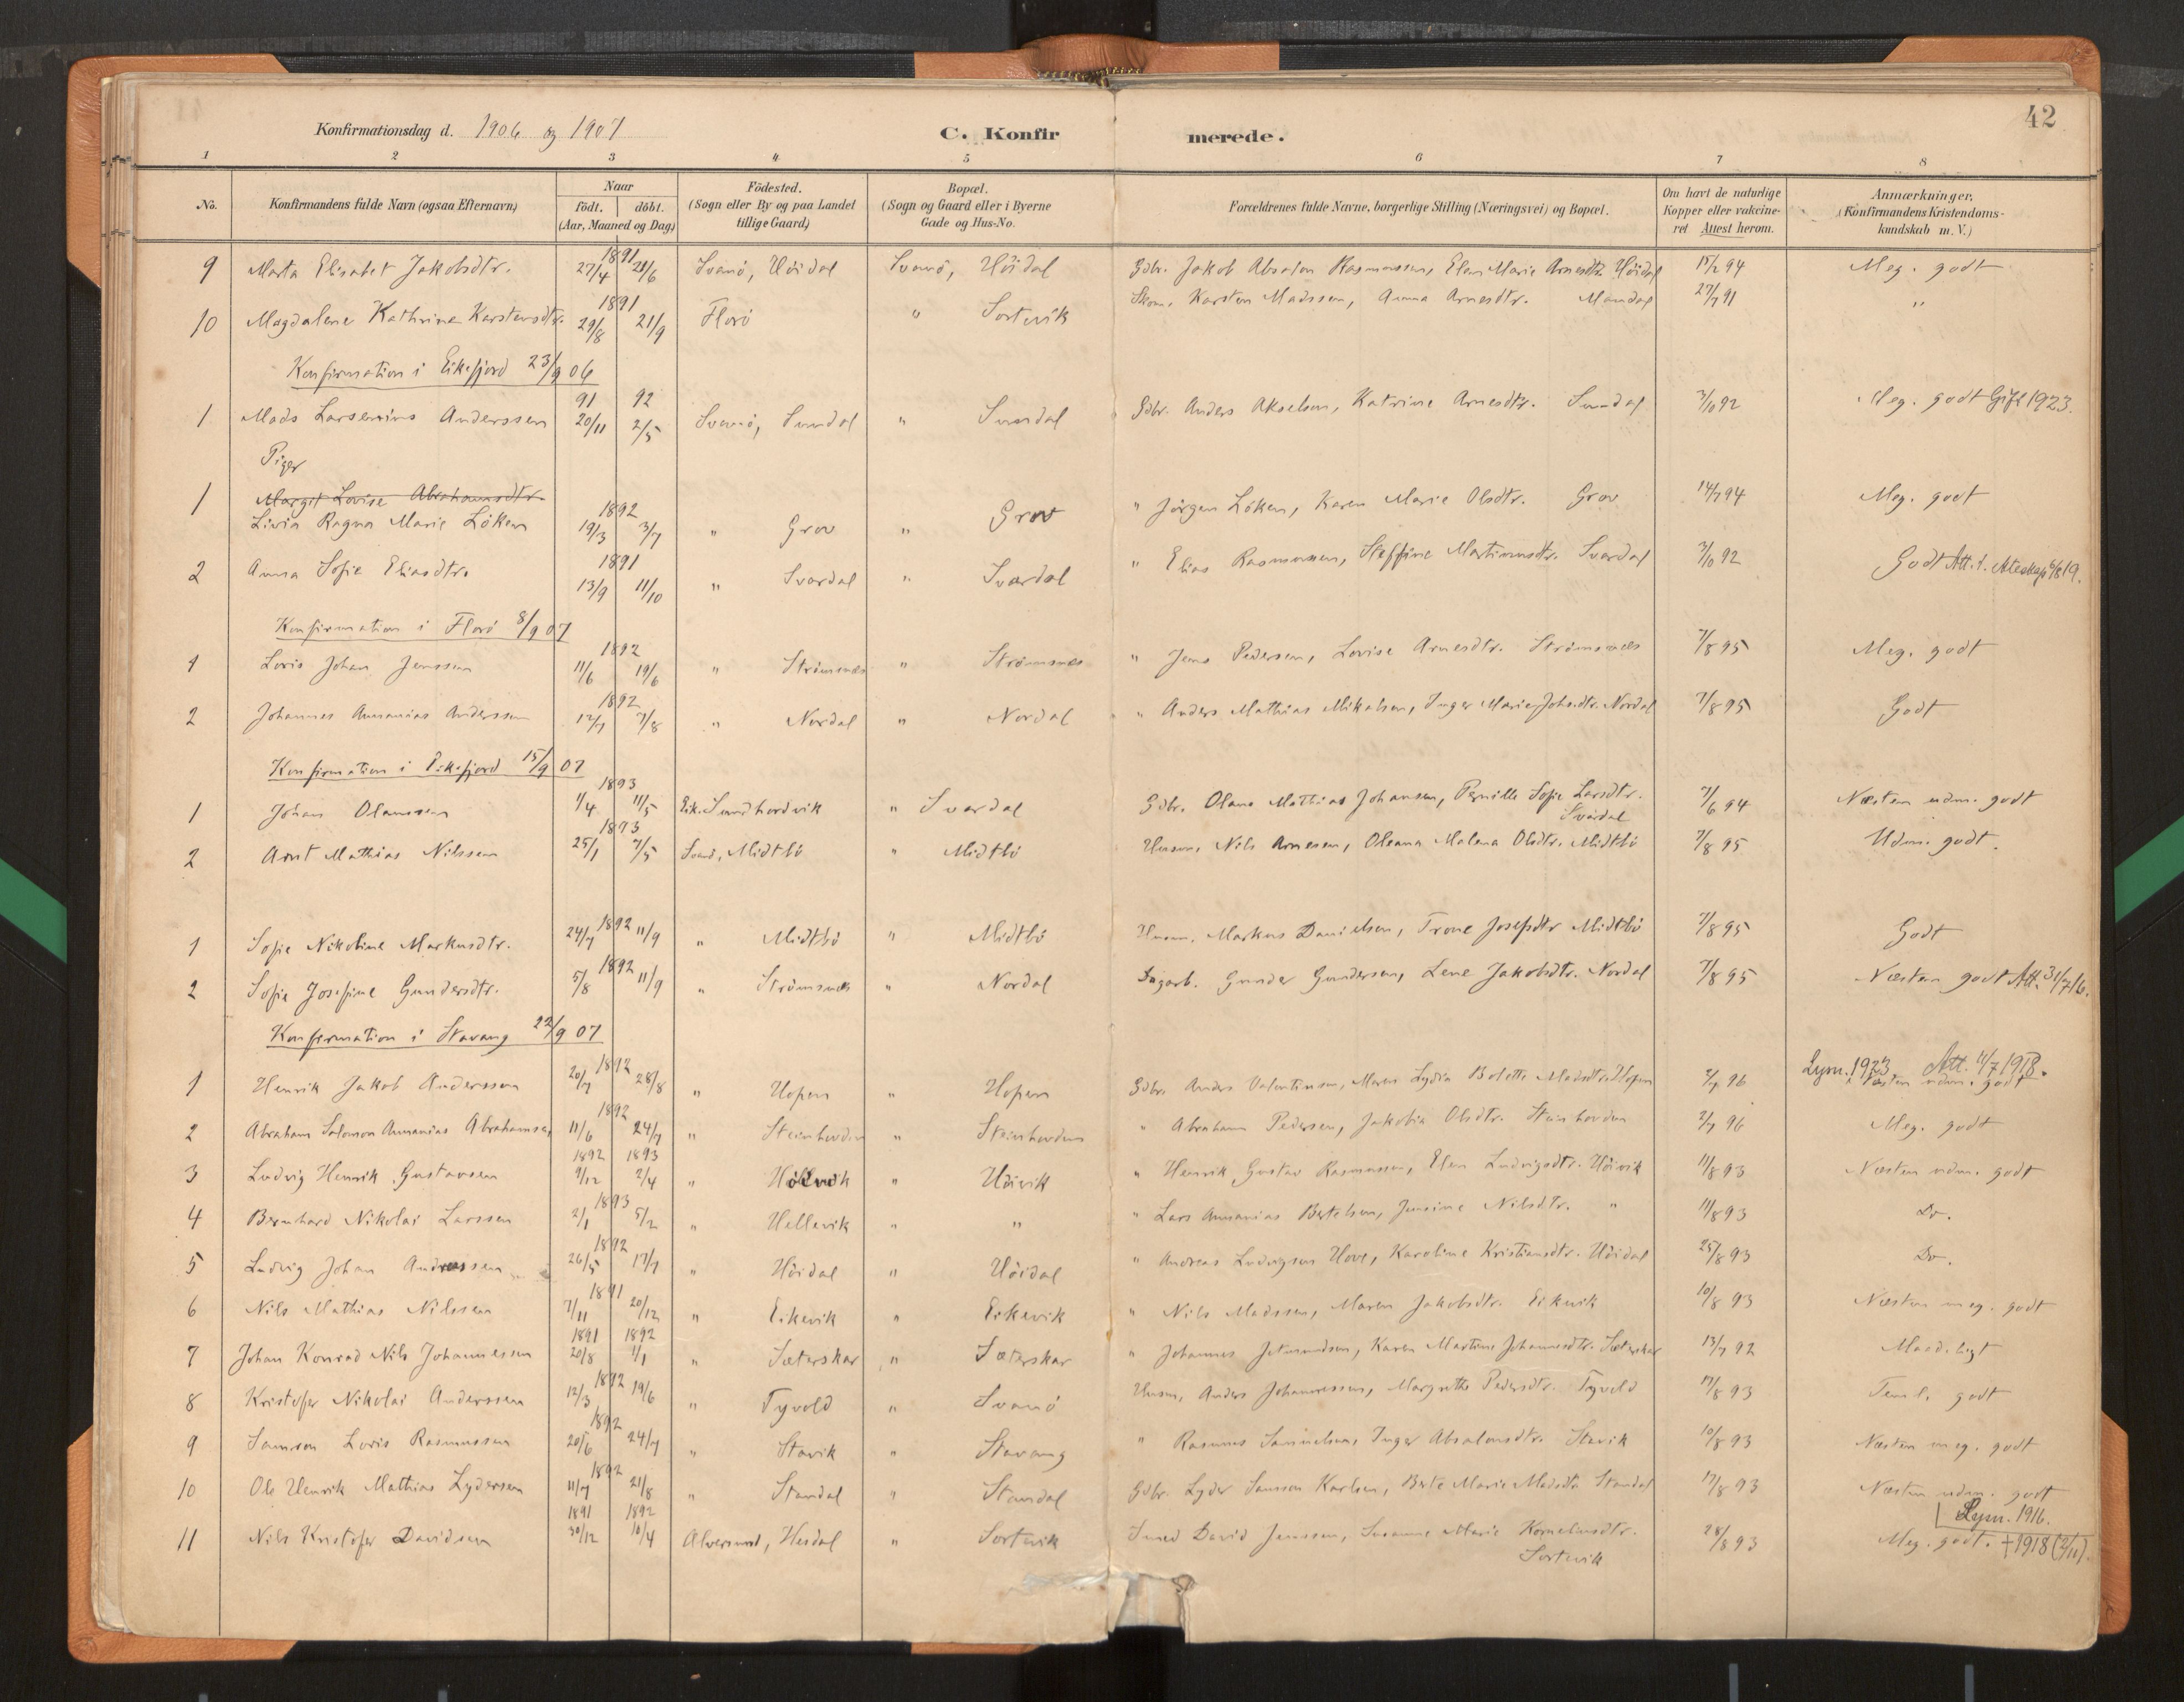 42
Konfirmationsdag d. 1906 og 1907 C. Konfirmerede.
1 2 3 4 5 6 7 8
No. Konfirmandens fulde Navn (ogsaa Efternavn) Naar födt. döbt. (Aar, Maaned og Dag) Födested. (Sogn eller By og paa Landet tillige Gaard) Bopæl. (Sogn og Gaard eller i Byerne Gade og Hus-No. Forældrenes fulde Navne, borgerlige Stilling (Næringsvei) og Bopæl. Om havt de naturlige Kopper eller vakcineret Attest herom. Anmærkninger. (Konfirmandens Kristendomskundskab m. V.)
9 Marta Elisabet Jakobsdtr. 1891 27/4 21/6 Svanö, Höidal Svanö, Höidal Gdbr. Jakob Absalon Rasmussen, Elen Marie Arnesdtr. Höidal 15/2 94 Meg. godt
10 Magdalene Kathrine Karstensdtr. 1891 29/8 21/9 Florö " Sortevik Skom. Karsten Madssen, Anna Arnesdtr. Mandal 27/7 91 "
Konfirmation i Eikefjord 23/9 06
1 Mads Larsenius Anderssen 91 20/11 92 2/5 Svanö, Sundal " Sundal Gdbr. Anders Akselsen, Katrine Arnesdtr. Sundal 3/10 92 Meg. godt Gift 1923.
Piger
1 Margit Lovise Abrahamsdtr.
Livia Ragna Marie Löken 1892 19/3 3/7 " Grov " Grov " Jörgen Löken, Karen Marie Olsdtr. Grov 14/7 94 Meg. godt
2 Anna Sofie Eliasdtr. 1891 13/9 11/10 " Svardal " Svardal " Elias Rasmussen, Steffine Martinusdtr. Svardal 3/10 92 Godt Att. t. 6/8 19.
Konfirmation i Florö 8/9 07
1 Loris Johan Jenssen 1892 11/6 19/6 " Strömsnæs " Strömsnæs " Jens Pedersen, Lovise Arnesdtr. Strömsnæs 7/8 95 Meg. godt
2 Johannes Annanias Anderssen 1892 12/7 7/8 " Nordal " Nordal " Anders Mathias Mikalsen, Inger Marie Johsdtr. Nordal 7/8 95 Godt
Konfirmation i Eikefjord 15/9 07
1 Johan Olanssen 1893 1/4 11/5 Eik. Sundhordvik " Svardal Gdbr. Olans Mathias Johansen, Pernille Sofie Larsdtr. Svardal 7/6 94 Næsten udm. godt
2 Arnt Mathias Nilssen 1893 25/1 7/5 Svanö, Midtbö " Midtbö Husm. Nils Arnesen, Oleana Malena Olsdtr. Midtbö 7/8 95 Udm. godt.
1 Sofie Nikoline Markusdtr. 1892 24/7 11/9 " Midtbö " Midtbö Husm. Markus Danielsen, Trone Josefsdtr Midtbö 7/8 95 Godt
2 Sofie Josefine Gundersdtr. 1892 5/8 11/9 " Strömsnæs " Nordal Dagarb. Gunder Gundersen, Lene Jakobsdtr. Nordal 7/8 95 Næsten godt Att. 31/7 16.
Konfirmation i Stavang 22/9 07
1 Henrik Jakob Anderssen 1892 20/7 28/8 " Hopen " Hopen Gdbr. Anders Valentinsen, Maren Lydia Bolette Madsdtr. Hopen 2/7 96 Lysn. 1923 Att. 11/7 1918. Næsten udm. godt
2 Abraham Salomon Annanias Abrahamsen 1892 11/6 24/7 " Steinhovden " Steinhovden " Abraham Pedersen, Jakobia Olsdtr. Steinhovden 2/7 96 Meg. godt
3 Ludvig Henrik Gustavsen 1892 9/12 1893 2/4 " " Höivik " Henrik Gustav Rasmussen, Elen Ludvigsdtr. Höivik 11/8 93 Næsten udm. godt
4 Bernhard Nikolai Larssen 1893 2/1 5/2 " Hellevik " " " Lars Annanias Bertelsen, Jensine Nilsdtr. " 11/8 93 Do.
5 Ludvig Johan Andreassen 1892 26/5 17/7 " Höidal " Höidal " Andreas Ludvigsen Hove, Karoline Kristiansdtr. Höidal 25/8 93 Do.
6 Nils Mathias Nilssen 1891 7/11 20/12 " Eikevik " Eikevik " Nils Madssen, Maren Jakobsdtr. Eikevik 10/8 93 Næsten meg. godt
7 Johan Konrad Nils Johannessen 1891 20/8 1892 1/1 " Sæterskar " Sæterskar " Johannes Jetmundsen, Karen Martine Johannesdtr. Sæterskar 13/7 92 Maadeligt
8 Kristofer Nikolai Anderssen 1892 12/3 19/6 " Tyvold " Svanö Husm. Anders Johannessen, Margrethe Pedersdtr. Tyvold 17/8 93 Teml. godt
9 Samson Loris Rasmussen 1892 20/6 24/7 " Stavik " Stavang " Rasmus Samuelsen, Inger Absalonsdtr. Stavik 10/8 93 Næsten meg. godt
10 Ole Henrik Mathias Lydersen 1892 11/7 21/8 " Standal " Standal Gdbr. Lyder Samson Karlsen, Berte Marie Madsdtr. Standal 17/8 93 Næsten udm. godt
Lysn. 1916.
11 Nils Kristofer Davidsen 1891 30/12 1892 10/4 Alversund, Hesdal " Sortevik Smed David Jenssen, Susanne Marie Korneliusdtr. Sortevik 28/8 93 Meg. godt. † 1918 (2/11).